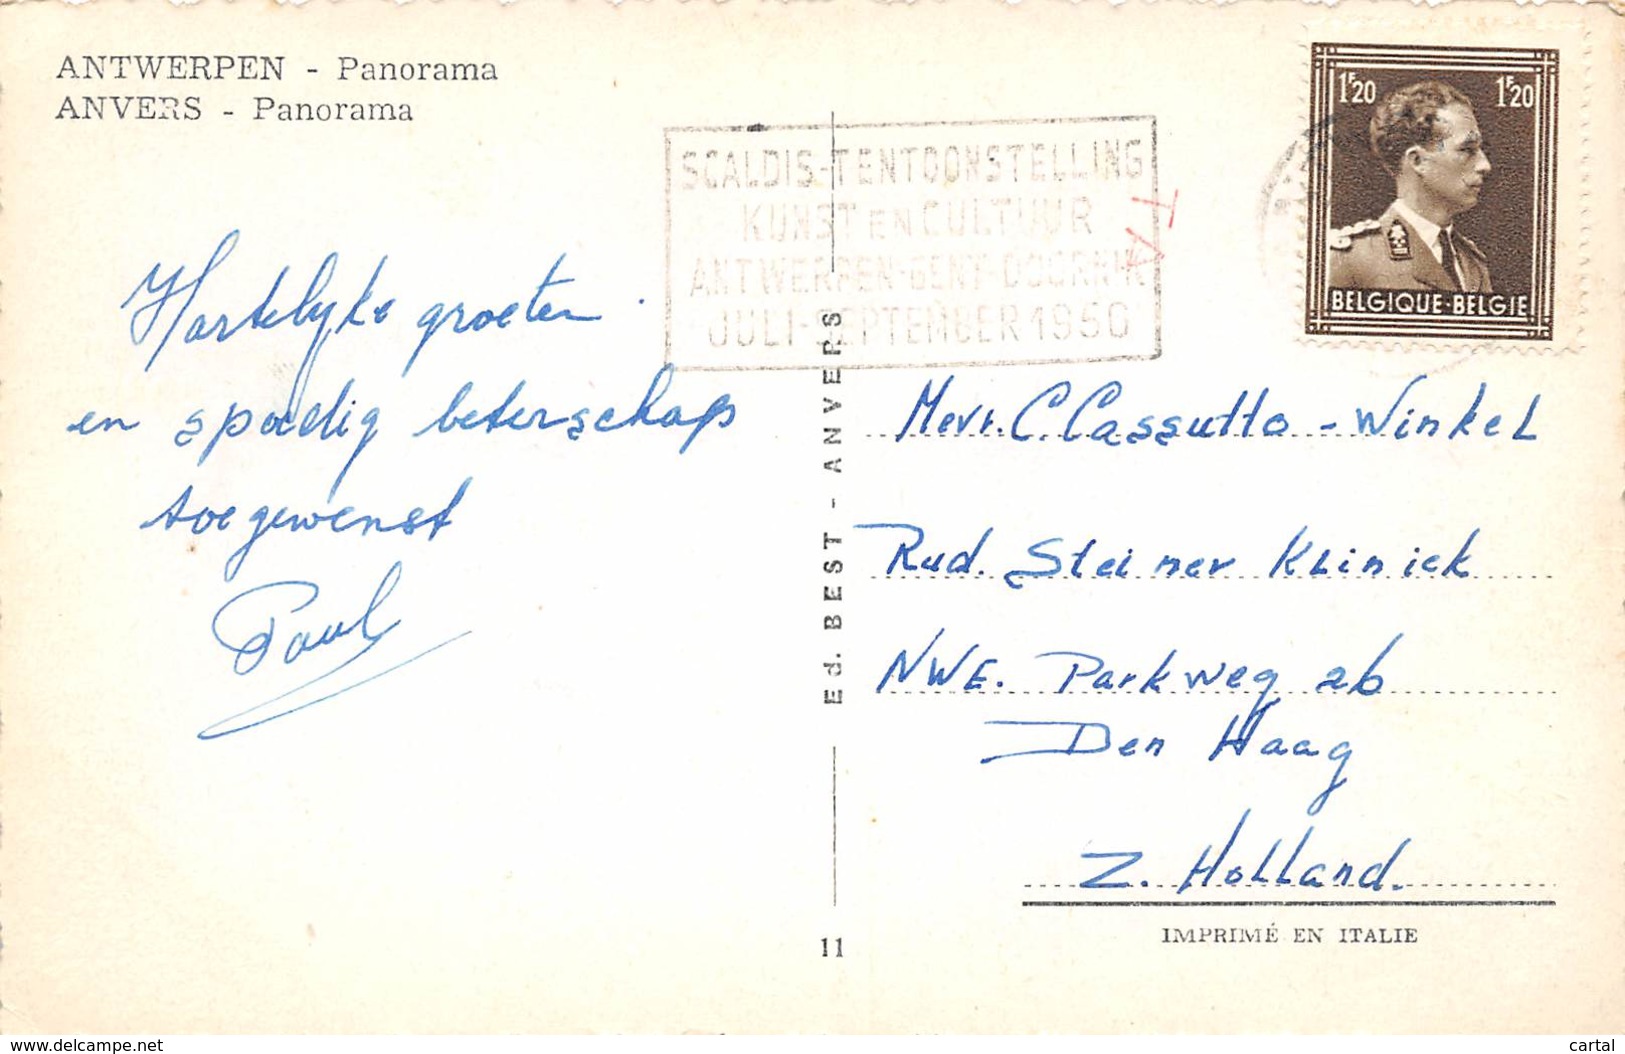 ANTWERPEN - Panorama
ANVERS - Panorama
SCALDIS-TENTOONSTELLING
KUNST EN CULTUUR
ANTWERPEN-GENT-DOORNIK
JULI-SEPTEMBER 1950
TA
1F20 1F20
BELGIQUE-BELGIE
Hartelyke groeten
en spoedig beterschap
toegewenst
Paul
Ed. BEST - ANVERS
Mevr. C. Cassutto - Winkel
Rud. Steiner Kliniek
NWE. Parkweg 26
Den Haag
Z. Holland.
IMPRIMÉ EN ITALIE
11
www.delcampe.net
cartal